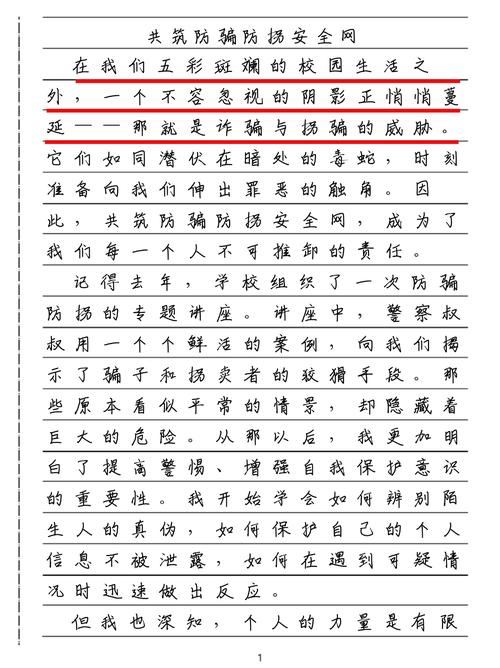 共筑防骗防拐安全网
在我们五彩斑斓的校园生活之
外，一个不容忽视的阴影正悄悄蔓
延——那就是诈骗与拐骗的威胁。
它们如同潜伏在暗处的毒蛇，时刻
准备向我们伸出罪恶的触角。因
此，共筑防骗防拐安全网，成为了
我们每一个人不可推卸的责任。
记得去年，学校组织了一次防骗
防拐的专题讲座。讲座中，警察叔
叔用一个个鲜活的案例，向我们揭
示了骗子和拐卖者的狡猾手段。那
些原本看似平常的情景，却隐藏着
巨大的危险。从那以后，我更加明
白了提高警惕、增强自我保护意识
的重要性。我开始学会如何辨别陌
生人的真伪，如何保护自己的个人
信息不被泄露，如何在遇到可疑情
况时迅速做出反应。
但我也深知，个人的力量是有限
1